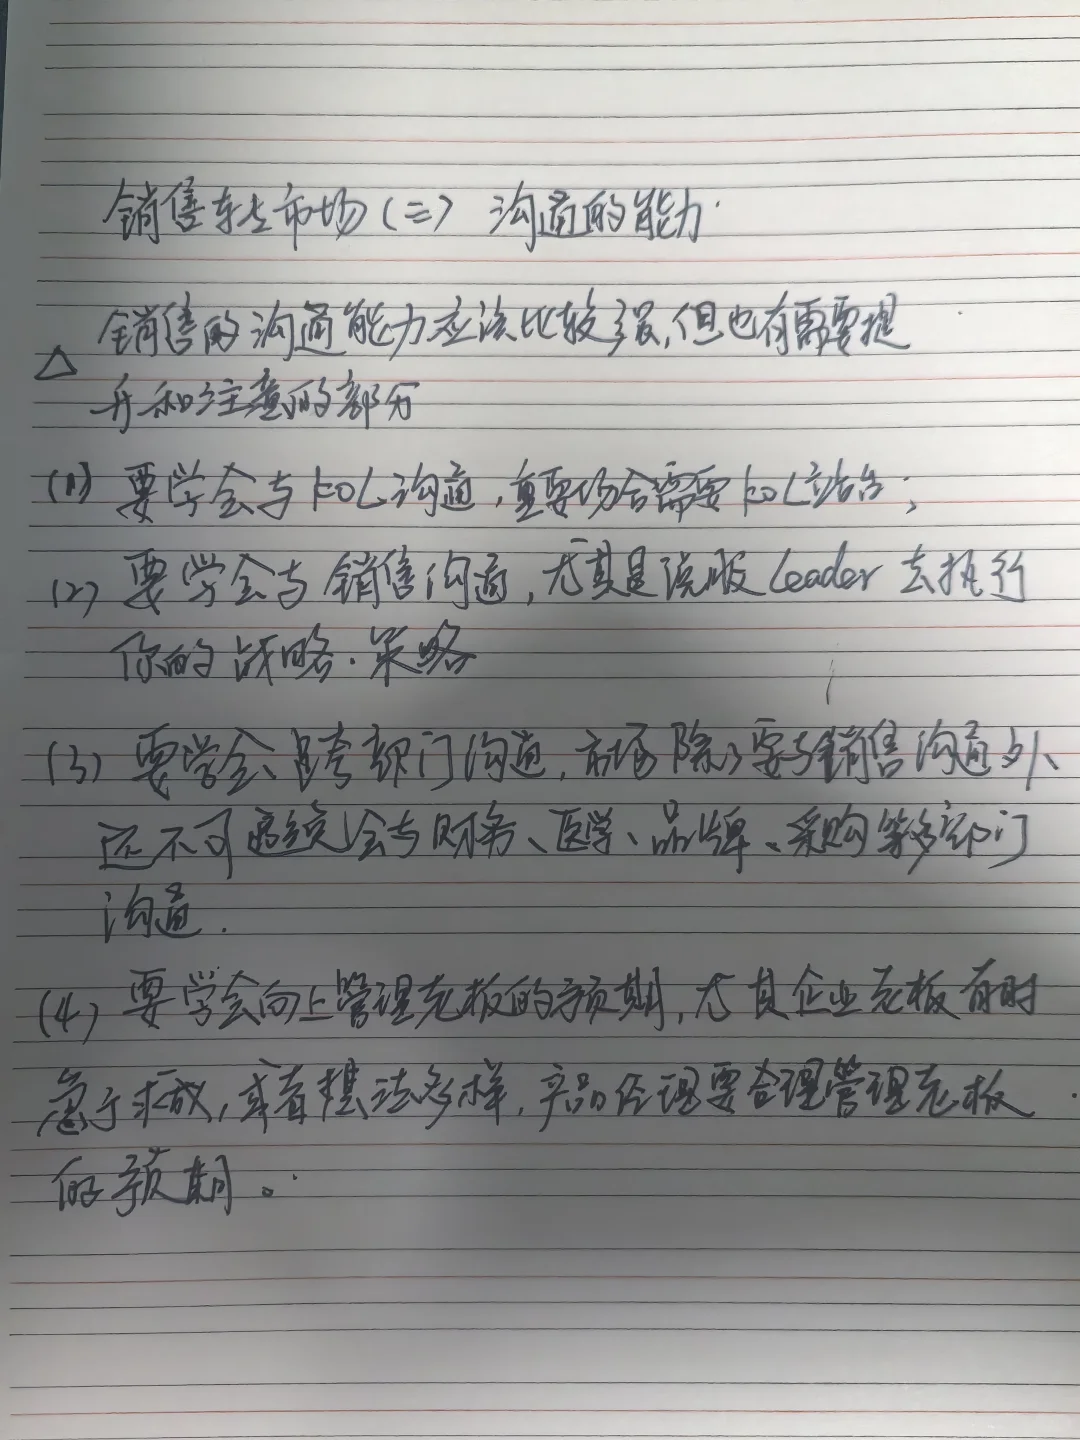 销售转市场(三) 沟通的能力.
销售的沟通能力应该比较强,但也有需要提
升和注意的部分
(1) 要学会与KOL沟通,重要场合需要KOL站台;
(2) 要学会与销售沟通,尤其是说服Leader去执行
你的战略.策略
(3) 要学会跨部门沟通,市场除了要与销售沟通外、
还不可 会与财务、医学、品牌、采购等多部门
沟通.
(4) 要学会向上管理老板的预期,尤其企业老板有时
急于求成,或者想法多样,产品经理要合理管理老板
的预期。